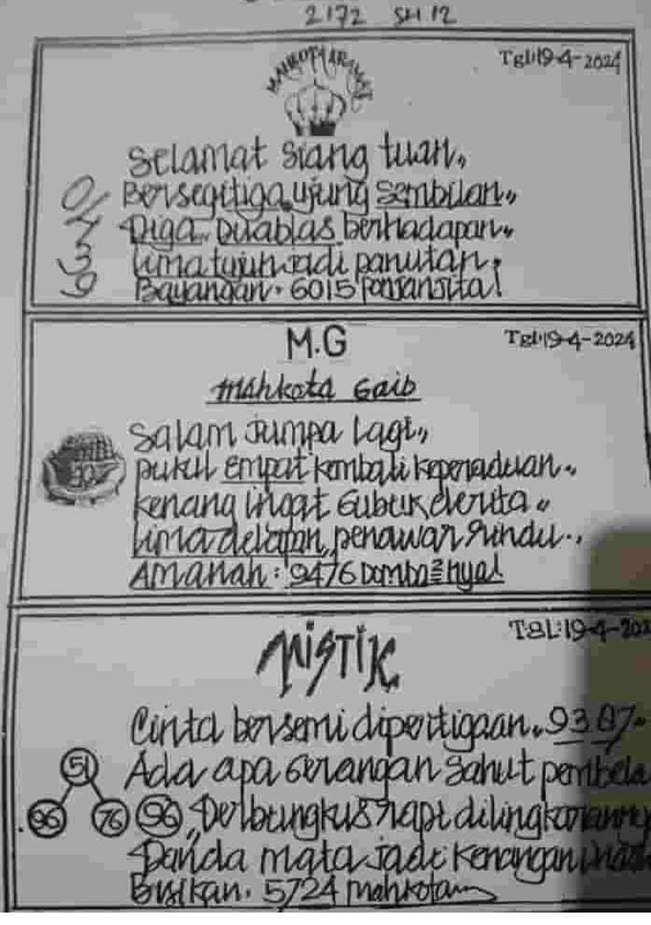 2172 SH 12
MAHKOTA KRAMAT
Tgl:19-4-2024
Selamat siang tuan,,
0 Bersegitiga ujung sembilan,,
7 Tiga Duablas berhadapan,,
3 lima tujuh jadi panutan,
9 Bayangan. 6015
M.G
Tgl:19-4-2024
Mahkota Gaib
Salam Jumpa Lagi,,
pukul empat kembali keperaduan,,
kenang ingat Gubuk derita,,
lima delapan, penawar rindu..
Amanah: 9476
MISTIK
TGL:19-4-202
Cinta bersemi dipertigaan. 93.87
51 Ada apa gerangan sahut pembela
96 76 96 Terbungkus rapi
Tanda mata jadi kenangan
Bisikan. 5724 mahkotam